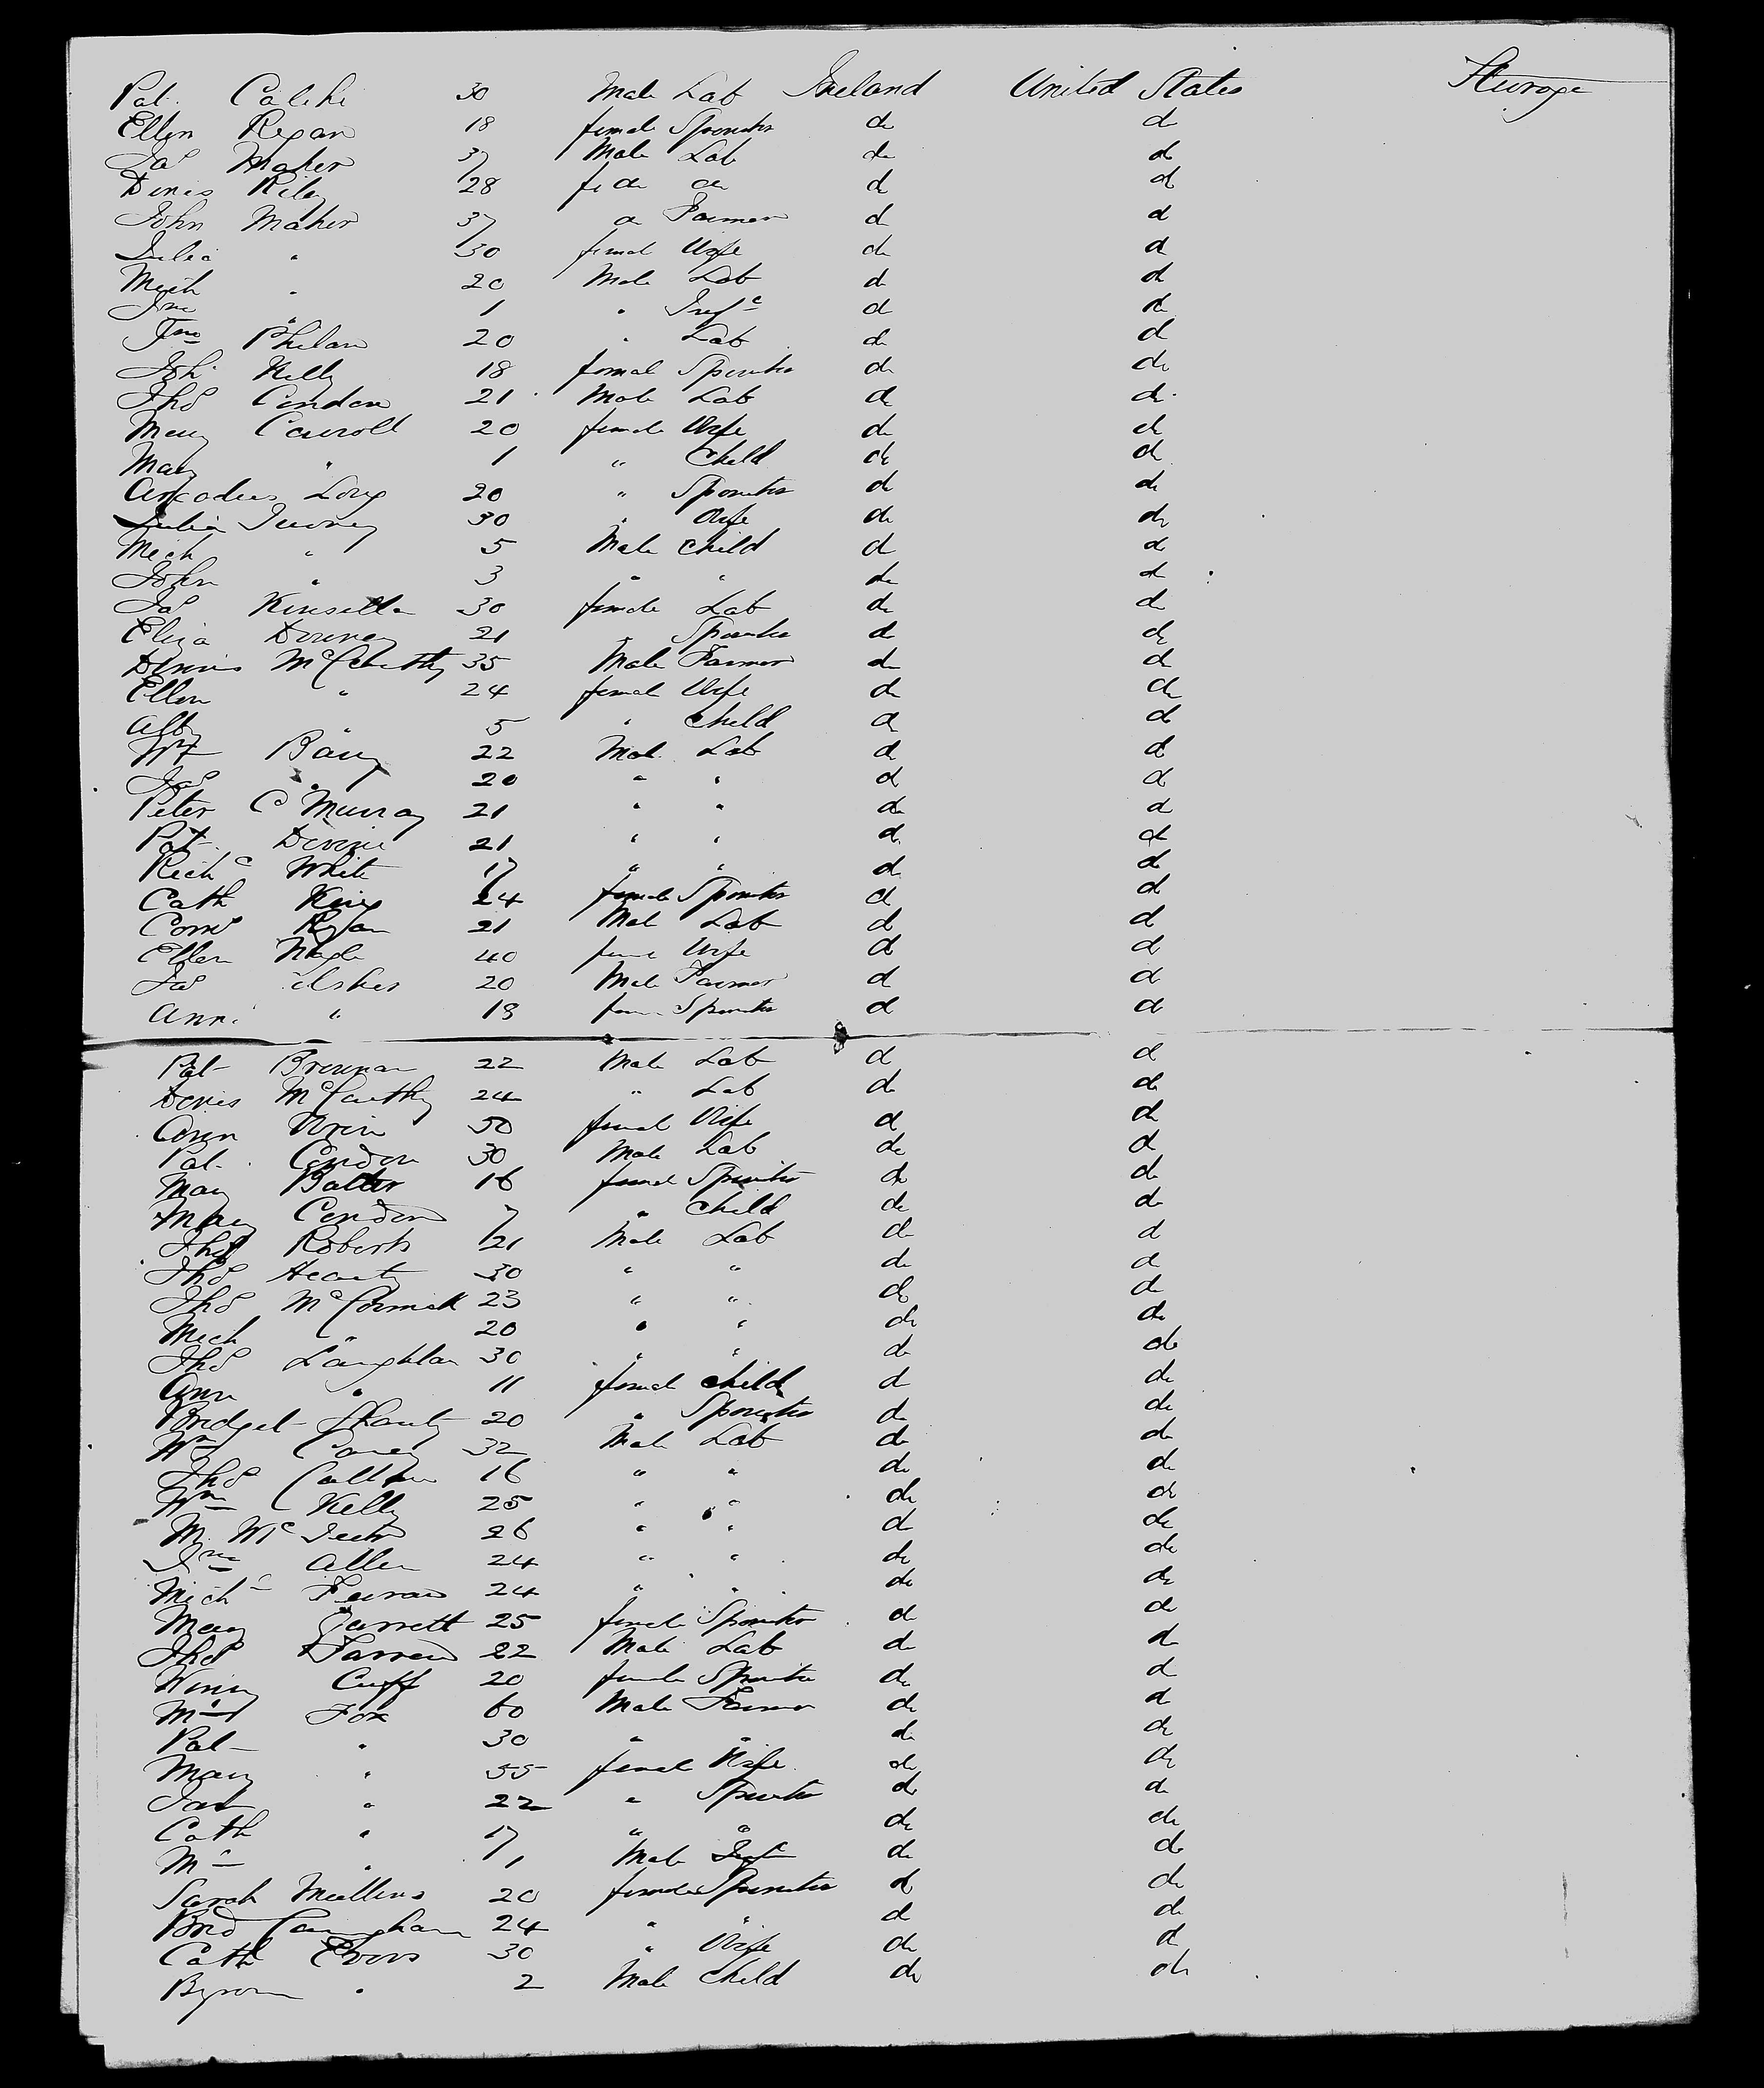 Pat. Calehi 30 Male Lab Ireland United States Steerage
Ellen Regan 18 female Spinster do do
Jas Maher 37 Male Lab do do
Denis Riley 28 do do do do
John Maher 37 do Farmer do do
Julia " 30 female Wife do do
Mich " 20 Male Lab do do
Jno " 1 " Inft do do
Jno Phelan 20 " Lab do do
Joh Kelly 18 female Spinster do do
Thos Condon 21 Male Lab do do
Mary Carroll 20 female Wife do do
Mary " 1 " Child do do
Long 20 " Spinster do do
Julia 30 " Wife do do
Mich " 5 Male Child do do
John " 3 " " do do
Jas Kinsella 30 female Lab do do
Eliza Downey 21 " Spinster do do
Dennis McCarthy 35 Male Farmer do do
Ellen " 24 female Wife do do
Abby " 5 " Child do do
Wm Barry 22 Male Lab do do
Jas " 20 " " do do
Peter C Murray 21 " " do do
Pat Devine 21 " " do do
Richd White 17 " " do do
Cath King 24 female Spinster do do
Corns Ryan 21 Male Lab do do
Ellen Nagle 40 fem Wife do do
Jas 20 Male Farmer do do
Ann " 18 fem Spinster do do
Pat Brennan 22 Male Lab do do
Denis McCarthy 24 " Lab do do
Ann 50 female Wife do do
Pat. Condon 30 Male Lab do do
Mary Butler 16 female Spinster do do
Mary Condon 7 " Child do do
Thos Roberts 21 Male Lab do do
Thos Hearty 30 " " do do
Thos McCormick 23 " " do do
Mich " 20 " " do do
Thos Laughlan 30 " " do do
Ann " 11 female Child do do
Bridget 20 " Spinster do do
Wm Carey 32 Male Lab do do
Thos 16 " " do do
Wm Kelly 25 " " do do
M. 26 " " do do
Jno Allen 24 " " do do
Mich 24 " " do do
Mary Garrett 25 female Spinster do do
Thos Farren 22 Male Lab do do
Winny Cuff 20 female Spinster do do
Fox 60 Male Farmer do do
Pat " 30 " " do do
Mary " 55 female Wife do do
" 22 " Spinster do do
Cath " 17 " " do do
" 1 Male Inft do do
Sarah Mullins 20 female Spinster do do
Brid 24 " " do do
Cath Evors 30 " Wife do do
Byron " 2 Male Child do do